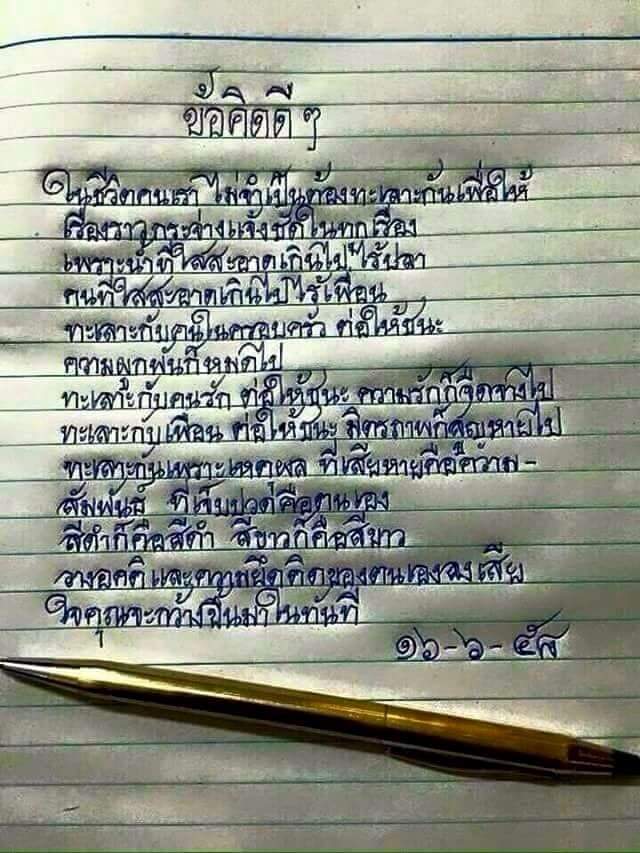 ข้อคิดดี ๆ
ในชีวิตคนเรา ไม่จำเป็นต้องทะเลาะกันเพื่อให้
เรื่องราวกระจ่างแจ้งชัดในทุกเรื่อง
เพราะน้ำที่ใสสะอาดเกินไป ไร้ปลา
คนที่ใสสะอาดเกินไป ไร้เพื่อน
ทะเลาะกับคนในครอบครัว ต่อให้ชนะ
ความผูกพันก็หมดไป
ทะเลาะกับคนรัก ต่อให้ชนะ ความรักก็จืดจางไป
ทะเลาะกับเพื่อน ต่อให้ชนะ มิตรภาพก็สูญหายไป
ทะเลาะกันเพราะเหตุผล ที่เสียหายคือความ-
สัมพันธ์ ที่เจ็บปวดคือตนเอง
สีดำก็คือสีดำ สีขาวก็คือสีขาว
วางอคติ และความยึดติดของตนเองลงเสีย
ใจคุณจะกว้างขึ้นมาในทันที
๑๖-๖-๕๘